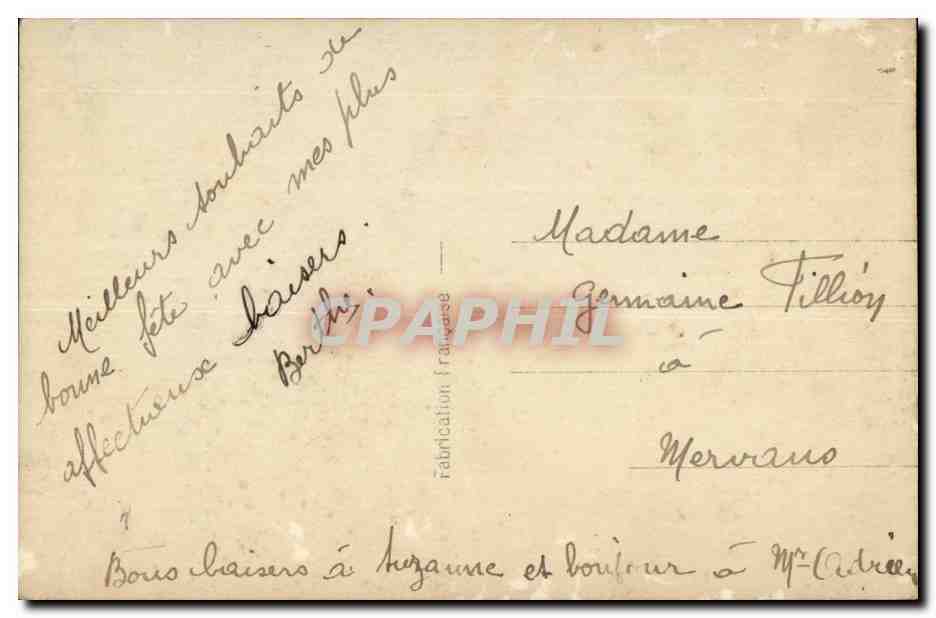 Meilleurs souhaits de
bonne fête avec mes plus
affectueux baisers.
Berthe.
CPAPHIL
Fabrication Française
Madame
Germaine Tillion
à
Mervans
Bons baisers à Suzanne et bonjour à Mr Adrien